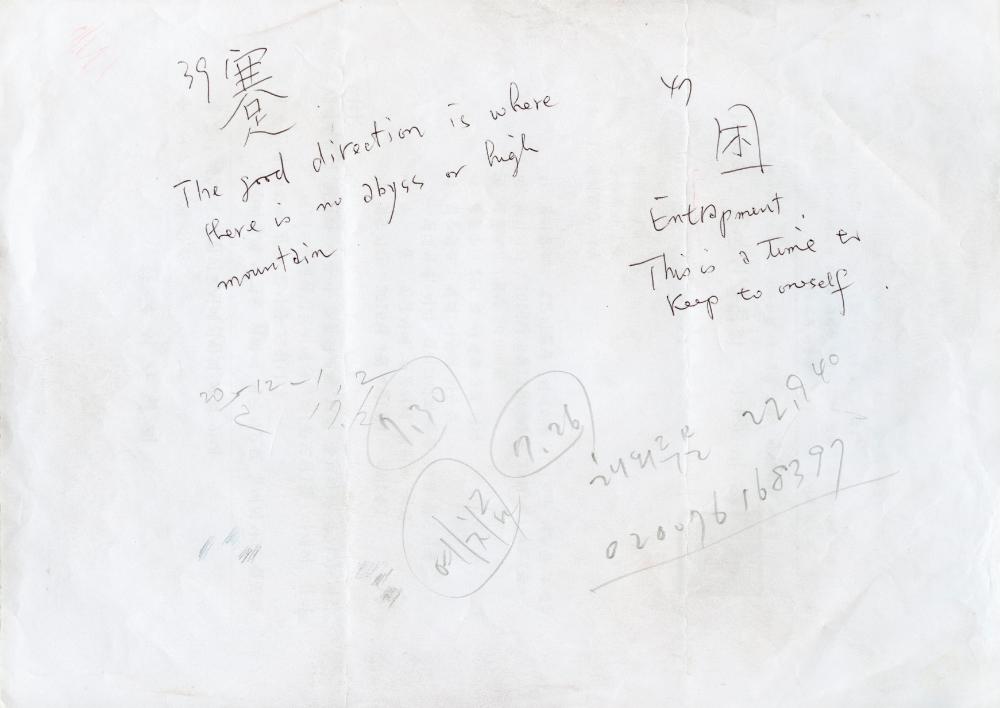 39 蹇
The good direction is where
there is no abyss or high
mountain.
47
困
Entrapment.
This is a time to
keep to oneself.
20-12-1, 2
17.2
7.30
7.26
22,940
예치금
02007616839